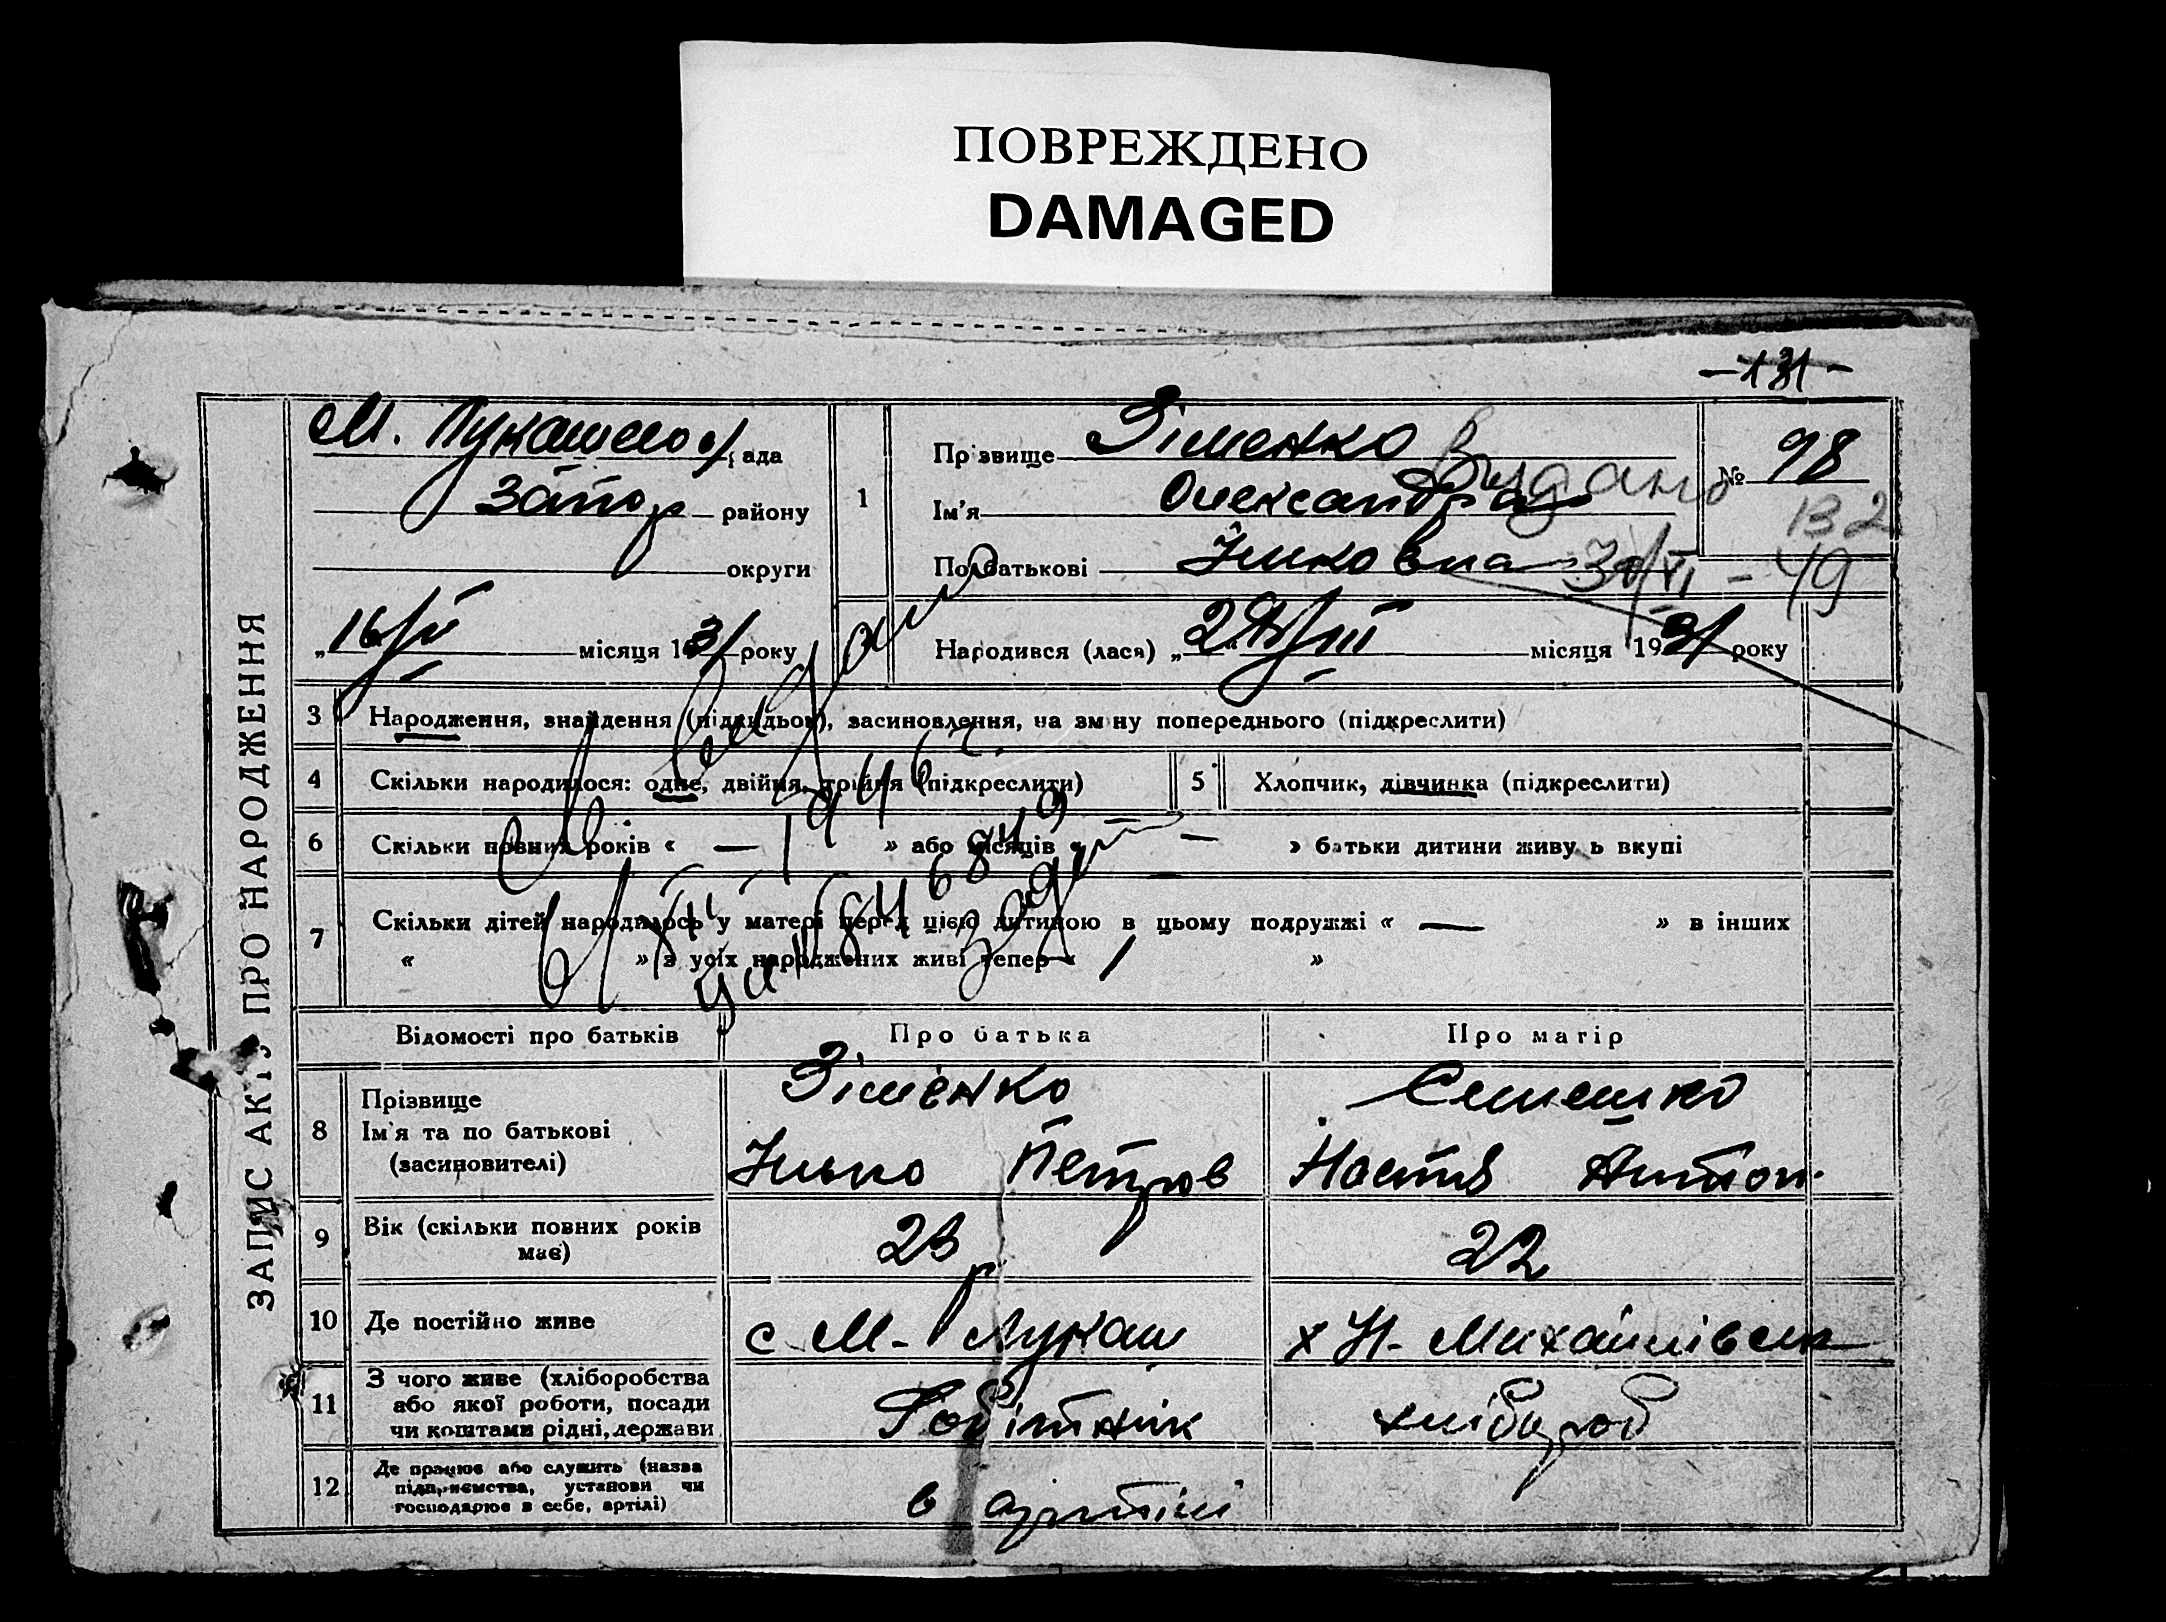 ПОВРЕЖДЕНО
DAMAGED
-131-
ЗАПИС АКТУ ПРО НАРОДЖЕННЯ
М. Лукашев рада
Запор району
округи
„16/IV місяця 1931 року
1
Прізвище Зіменко
Ім'я Олександра
По батькові Ільковна
№ 98
Видано
132
49
Народився (лася) „ III місяця 1931 року
3 Народження, знайдення (підкидьок), засиновлення, на зміну попереднього (підкреслити)
4 Скільки народилося: одне, двійня, трійня (підкреслити)
5 Хлопчик, дівчинка (підкреслити)
6 Скільки повних років « — » або місяців « — » батьки дитини живуть вкупі
7 Скільки дітей народилось у матері перед цією дитиною в цьому подружжі « — » в інших
« » з усіх народжених живі тепер « 1 »
Відомості про батьків Про батька Про матір
8 Прізвище
Ім'я та по батькові
(засиновителі)
Зіменко
Ілько Петров
Семешко
Настя Антон.
9 Вік (скільки повних років має)
23 р
22
10 Де постійно живе
с М- Лукаш
х Н- Михайлівськ
11 З чого живе (хліборобства
або якої роботи, посади
чи коштами рідні, держави
Робітник
хлібороб
12 Де працює або служить (назва
підприємства, установи чи
господарює в себе, артілі)
в артілі